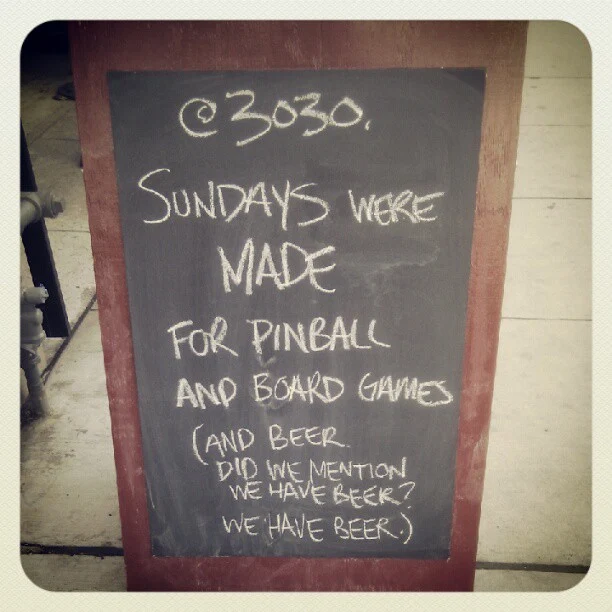 @3030.
SUNDAYS WERE
MADE
FOR PINBALL
AND BOARD GAMES
(AND BEER.
DID WE MENTION
WE HAVE BEER?
WE HAVE BEER.)